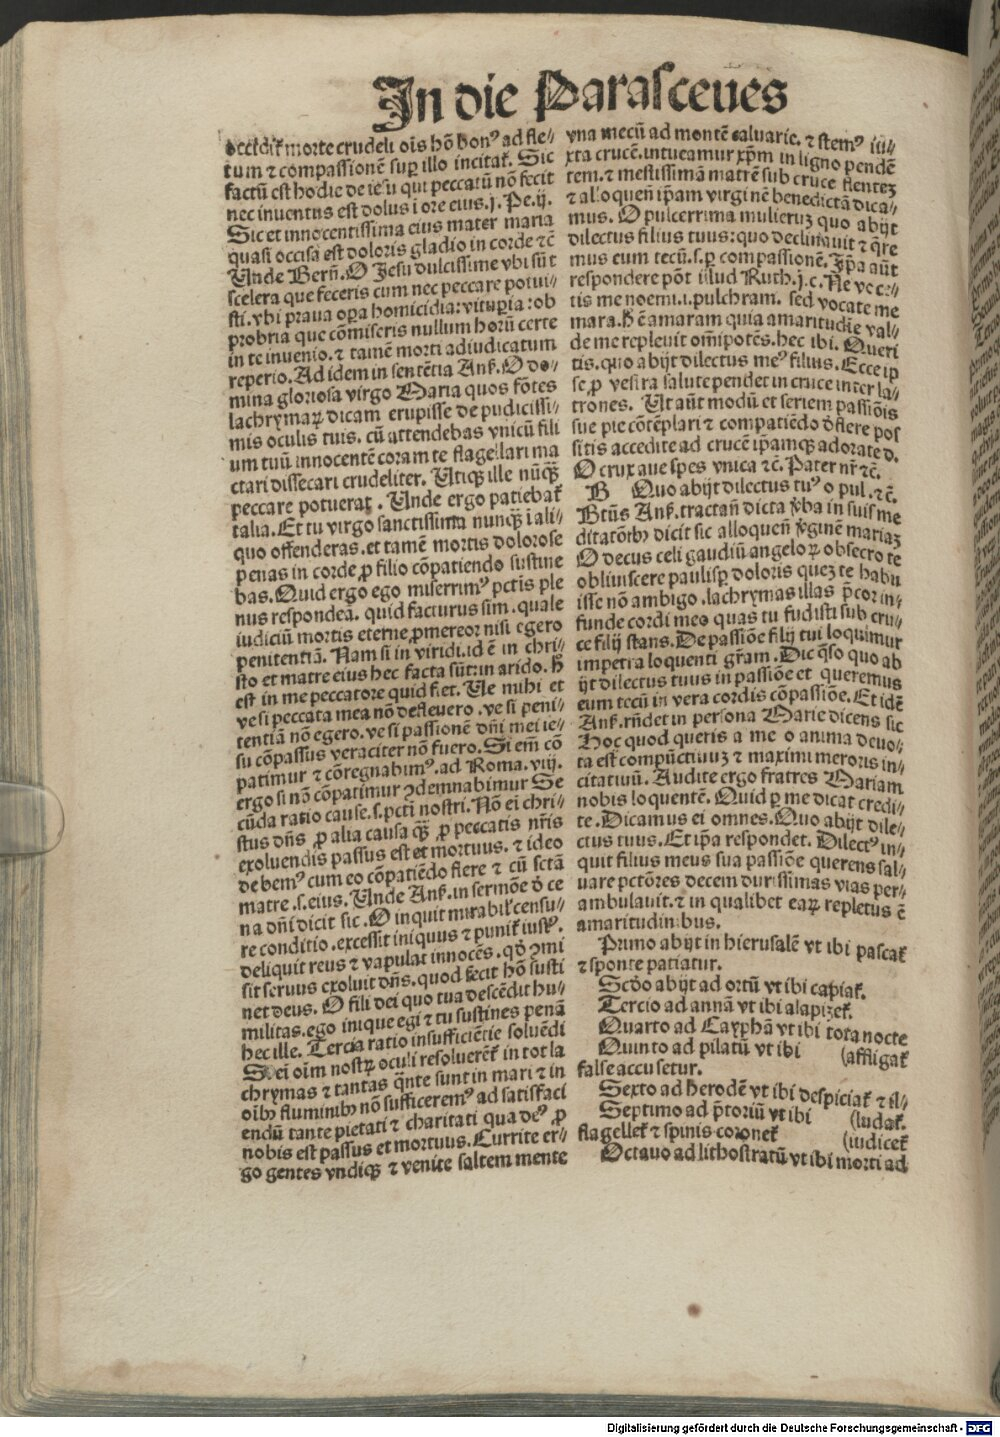 In die Parasceues
occidit᷑ morte crudeli oīs hō bonꝰ ad fle⸗
tum ⁊ compassionē suꝑ illo incitat᷑. Sic
factū est hodie de iesu qui peccatū nō fecit
nec inuentus est dolus ī ore eius. j. Pe. ij.
Sic et innocentissima eius mater maria
quasi occisa est doloris gladio in corde ⁊c̄
Unde Bern̄. O Jesu dulcissime vbi sūt
scelera que feceris cum nec peccare potui⸗
sti. vbi praua oꝑa homicidia: vituꝑia: ob
probria que cōmiseris nullum horū certe
in te inuenio. ⁊ tamē morti adiudicatum
reperio. Ad idem in sentētia Anẜ. O do⸗
mina gloriosa virgo Maria quos fōtes
lachrymaꝝ dicam erupisse de pudicissi⸗
mis oculis tuis. cū attendebas vnicū fili
um tuū innocentē coram te flagellari ma
ctari dissecari crudeliter. Utiqꝫ ille nūqꝫ̄
peccare potuerat. Unde ergo patiebat᷑
talia. Et tu virgo sanctissima nunqꝫ̄ ī ali⸗
quo offenderas. et tamē mortis dolorose
penas in corde ꝓ filio cōpatiendo sustine
bas. Quid ergo ego miserrimꝰ pctīs ple
nus respondeā. quid facturus sim. quale
iudiciū mortis eterne ꝓmereor nisi egero
penitentiā. Nam si in viridi. id ē in chri⸗
sto et matre eius hec facta sūt: in arido. h̄
est in me peccatore quid fiet. Ve mihi et
ve si peccata mea nō defleuero. ve si peni⸗
tentiā nō egero. ve si passionē dn̄i mei ie⸗
su cōpassus veraciter nō fuero. Si em̄ cō
patimur ⁊ cōregnabimꝰ. ad Roma. viij.
ergo si nō cōpatimur ꝯdemnabimur Se
cūda ratio cause. s. pctī nostri. Nō ei chri⸗
stus dn̄s ꝓ alia causa qꝫ̄ ꝓ peccatis nr̄is
exoluendis passus est et mortuus. ⁊ ideo
debemꝰ cum eo cōpatiēdo flere ⁊ cū sctā
matre. s. eius. Unde Anẜ. in sermōe ð ce
na dn̄i dicit sic. O inquit mirabil᷑ censu⸗
re conditio. excessit iniquus ⁊ punit᷑ iustꝰ.
deliquit reus ⁊ vapulat innocēs. qð ꝯmi
sit seruus exoluit dn̄s. quod fecit hō susti
net deus. O fili dei quo tua descēdit hu⸗
militas. ego inique egi ⁊ tu sustines penā
hec ille. Tercia ratio insufficiētie soluēdi
Si ei oīm nostꝝ oculi resoluerēt᷑ in tot la
chrymas ⁊ tantas qn̄te sunt in mari ⁊ in
oībꝰ fluminibꝰ nō sufficeremꝰ ad satisfaci
endū tante pietati ⁊ charitati qua deꝰ ꝓ
nobis est passus et mortuus. Currite er⸗
go gentes vndiqꝫ ⁊ venite saltem mente
vna mecū ad montē caluarie. ⁊ stemꝰ iu⸗
xta crucē. intueamur xp̄m in ligno pendē
tem. ⁊ mestissimā matrē sub cruce flenteꝫ
⁊ alloquen̄ ip̄am virginē benedictā dica⸗
mus. O pulcerrima mulieruꝫ quo abijt
dilectus filius tuus: quo declinauit ⁊ q̄re
mus eum tecū. s. ꝑ compassionē. Ip̄a aūt
respondere pōt illud Ruth. j. c. Ne voce⸗
tis me noemi. i. pulchram. sed vocate me
mara. h̄ ē amaram quia amaritudīe val⸗
de me repleuit om̄ipotēs. hec ibi. Queri
tis. quo abijt dilectus meꝰ filius. Ecce ip
se ꝓ vestra salute pendet in cruce inter la⸗
trones. Ut aūt modū et seriem passiōis
sue pie cōtēplari ⁊ compatiēdo ðflere pos
sitis accedite ad crucē ip̄amqꝫ adorate d.
O crux aue spes vnica ⁊c̄. Pater nr̄ ⁊c̄.
B Quo abijt dilectus tuꝰ o pul. ⁊c̄.
Btūs Anẜ. tractan̄ dicta v̄ba in suis me
ditatōībꝰ dicit sic alloquen̄ v̄ginē mariaꝫ
O decus celi gaudiū angeloꝝ obsecro te
obliuiscere paulisꝑ doloris queꝫ te habu
isse nō ambigo. lachrymas illas p̄cor in⸗
funde cordi meo quas tu fudisti sub cru⸗
ce filij stans. De passiōe filij tui loquimur
impetra loquenti gr̄am. Dic qso quo ab
ijt dilectus tuus in passiōe et queremus
eum tecū in vera cordis cōpassiōe. Et idē
Anẜ. rn̄det in persona Marie dicens sic
Hoc quod queris a me o anima deuo⸗
ta est compūctiuuꝫ ⁊ maximi meroris in⸗
citatiuū. Audite ergo fratres Mariam
nobis loquentē. Quid ꝑ me dicat credi⸗
te. Dicamus ei omnes. Quo abijt dile⸗
ctus tuus. Et ip̄a respondet. Dilectꝰ in⸗
quit filius meus sua passiōe querens sal⸗
uare pctōres decem durissimas vias per⸗
ambulauit. ⁊ in qualibet eaꝝ repletus ē
amaritudinibus.
Primo abijt in hierusalē vt ibi pascat᷑
⁊ sponte patiatur.
Scdo abijt ad ortū vt ibi capiat᷑.
Tercio ad annā vt ibi alapizet᷑.
Quarto ad Cayphā vt ibi tota nocte
Quinto ad pilatū vt ibi (affligat᷑
false accusetur.
Sexto ad herodē vt ibi despiciat᷑ ⁊ il⸗
Septimo ad p̄toriū vt ibi (ludat᷑.
flagellet᷑ ⁊ spinis coronet᷑ (iudicet᷑
Octauo ad lithostratū vt ibi morti ad
Digitalisierung gefördert durch die Deutsche Forschungsgemeinschaft - DFG